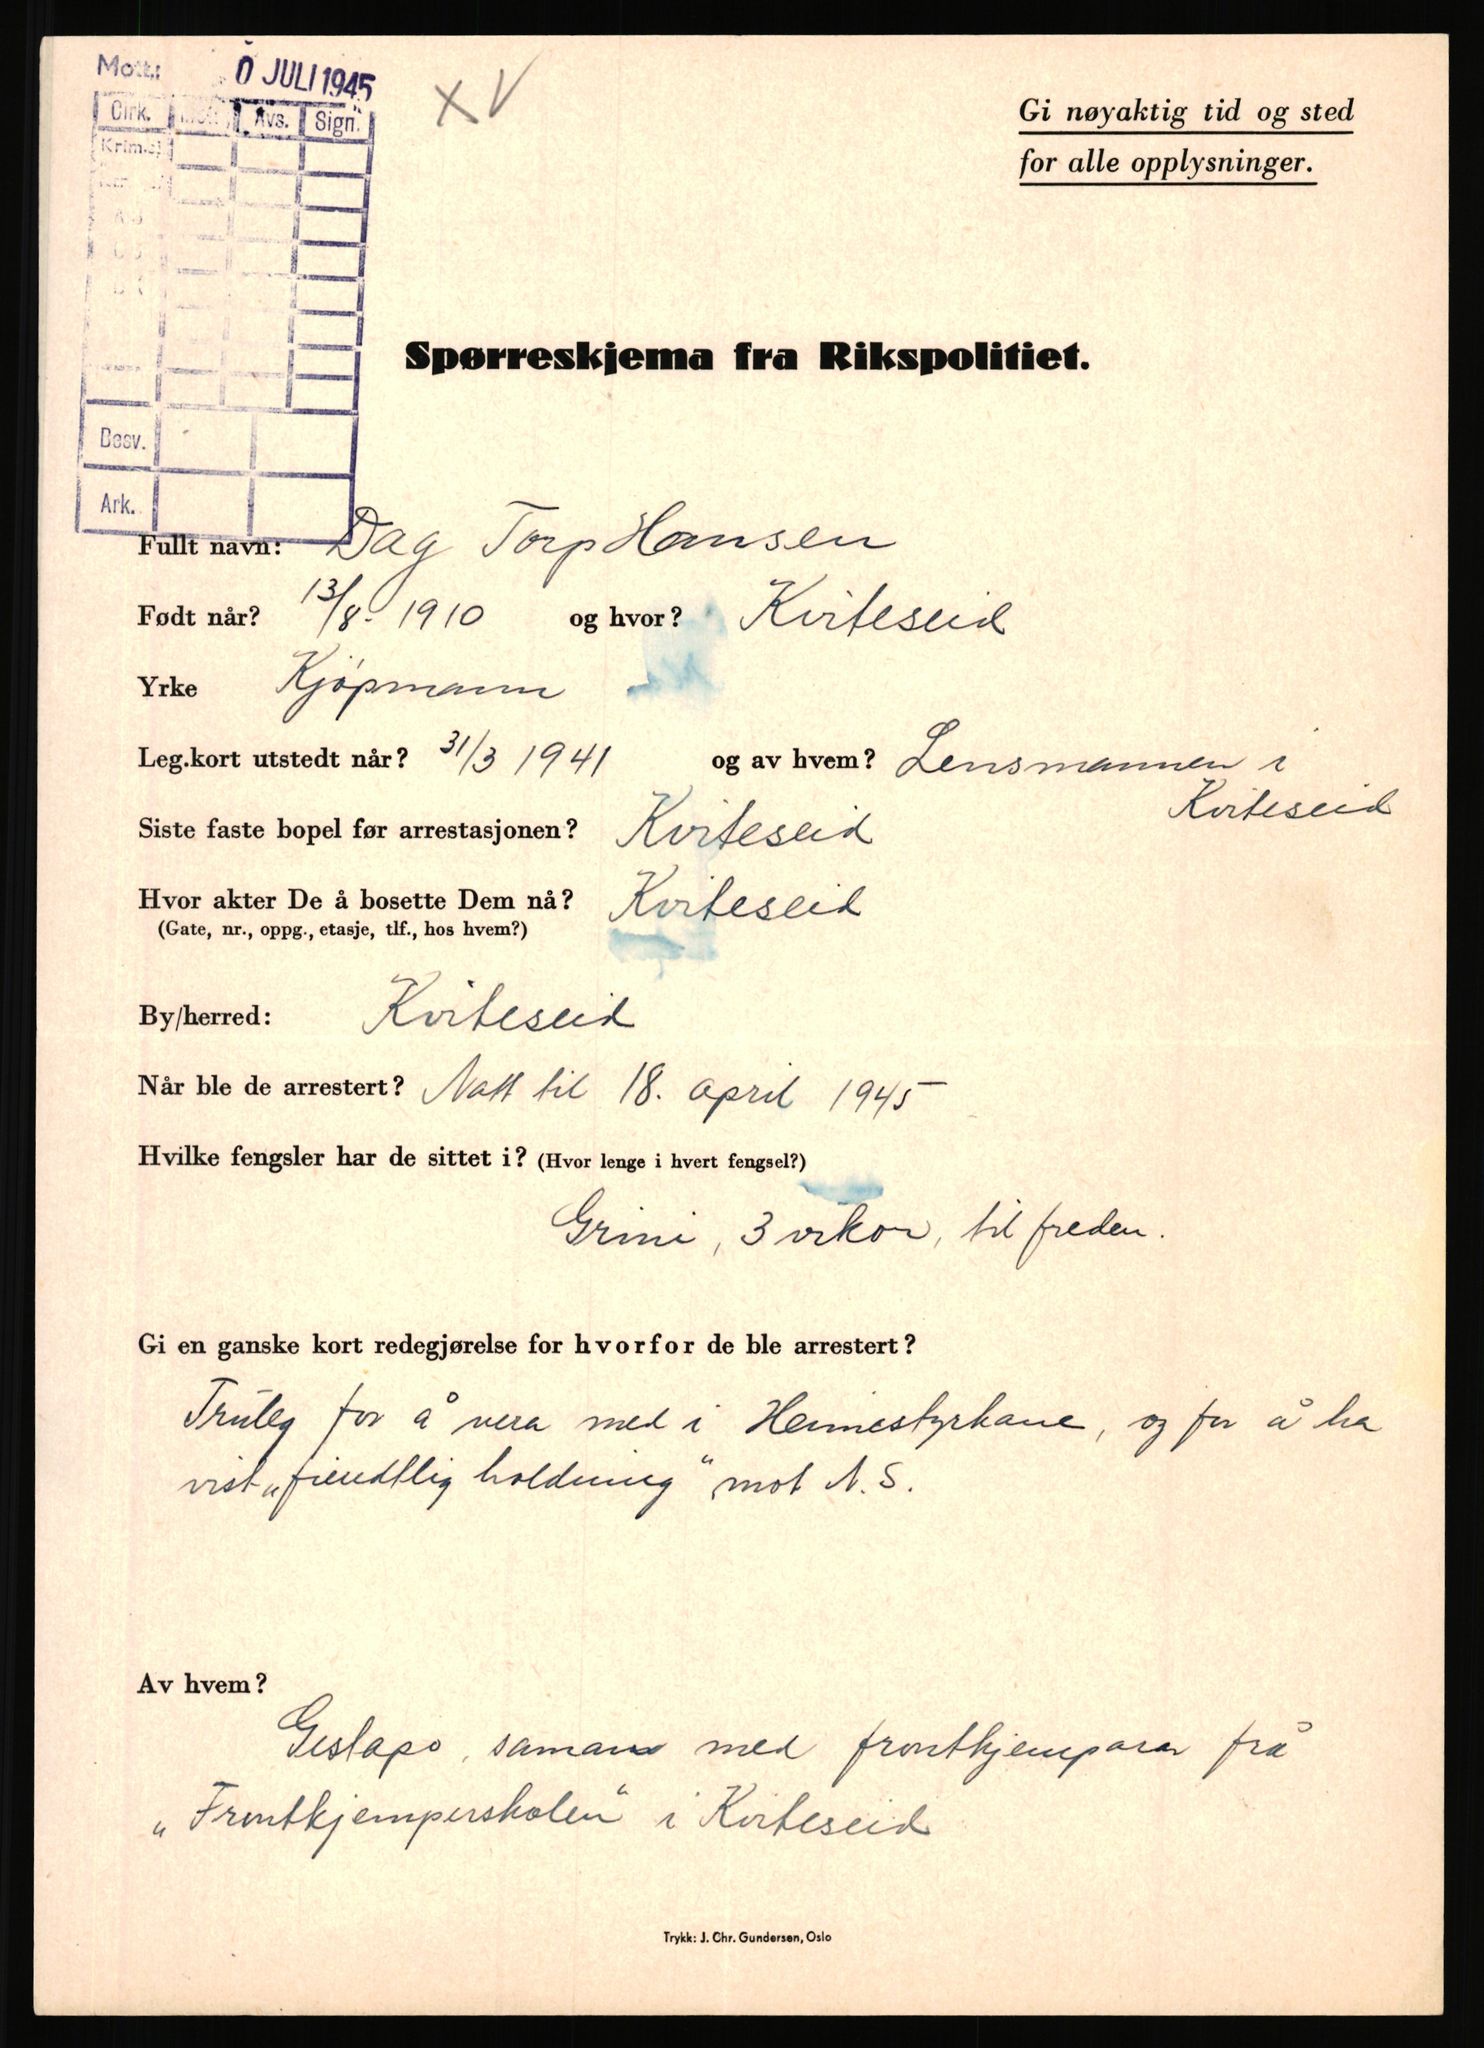 Mott.: 0 JULI 1945
XV
Cirk. Mott. Avs. Sign.
Krim.
Besv.
Ark.
Gi nøyaktig tid og sted
for alle opplysninger.
Spørreskjema fra Rikspolitiet.
Fullt navn: Dag Torp Hansen
Født når? 13/8-1910 og hvor? Kviteseid
Yrke Kjøpmann
Leg.kort utstedt når? 31/3 1941 og av hvem? Lensmannen i
Kviteseid
Siste faste bopel før arrestasjonen? Kviteseid
Hvor akter De å bosette Dem nå? Kviteseid
(Gate, nr., oppg., etasje, tlf., hos hvem?)
By/herred: Kviteseid
Når ble de arrestert? Natt til 18. april 1945
Hvilke fengsler har de sittet i? (Hvor lenge i hvert fengsel?)
Grini, 3 vekor, til freden.
Gi en ganske kort redegjørelse for hvorfor de ble arrestert?
Truleg for å vera med i Heimestyrkane, og for å ha
vist „fiendtlig holdning“ mot N.S.
Av hvem?
Gestapo, saman med frontkjemparar frå
„Frontkjemperskolen“ i Kviteseid
Trykk: J. Chr. Gundersen, Oslo